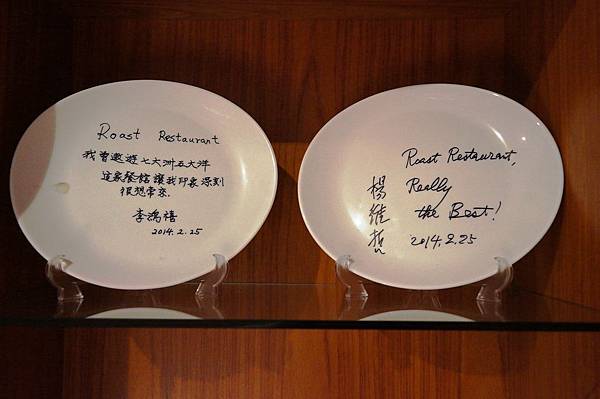 Roast Restaurant
我曾遨遊七大洲五大洋
這家餐館讓我印象深刻
很想常來.
李鴻禧
2014.2.25
Roast Restaurant,
Really
the Best!
2014.2.25
楊維哲